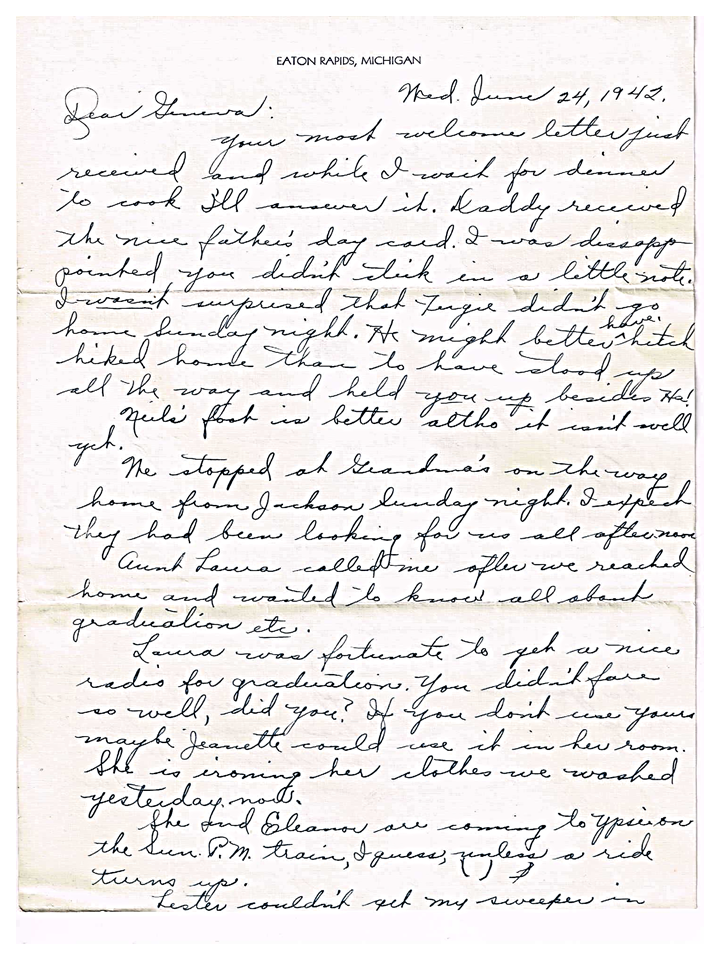 EATON RAPIDS, MICHIGAN
Wed. June 24, 1942.
Dear Geneva:
Your most welcome letter just
received and while I wait for dinner
to cook I'll answer it. Daddy received
the nice father's day card. I was dissapp-
pointed you didn't stick in a little note.
I wasn't surprised that Fergie didn't go
home Sunday night. He might better have hitch
hiked home than to have stood up
all the way and held you up besides Ha!
Neil's foot is better altho it isn't well
yet.
We stopped at Grandma's on the way
home from Jackson Sunday night. I expect
they had been looking for us all afternoon
Aunt Laura called me after we reached
home and wanted to know all about
graduation etc.
Laura was fortunate to get a nice
radio for graduation. You didn't fare
so well, did you? If you don't use yours
maybe Jeanette could use it in her room.
She is ironing her clothes we washed
yesterday, now.
She and Eleanor are coming to Ypsi on
the Sun. P.M. train, I guess, unless a ride
turns up.
Lester couldn't get my sweeper in